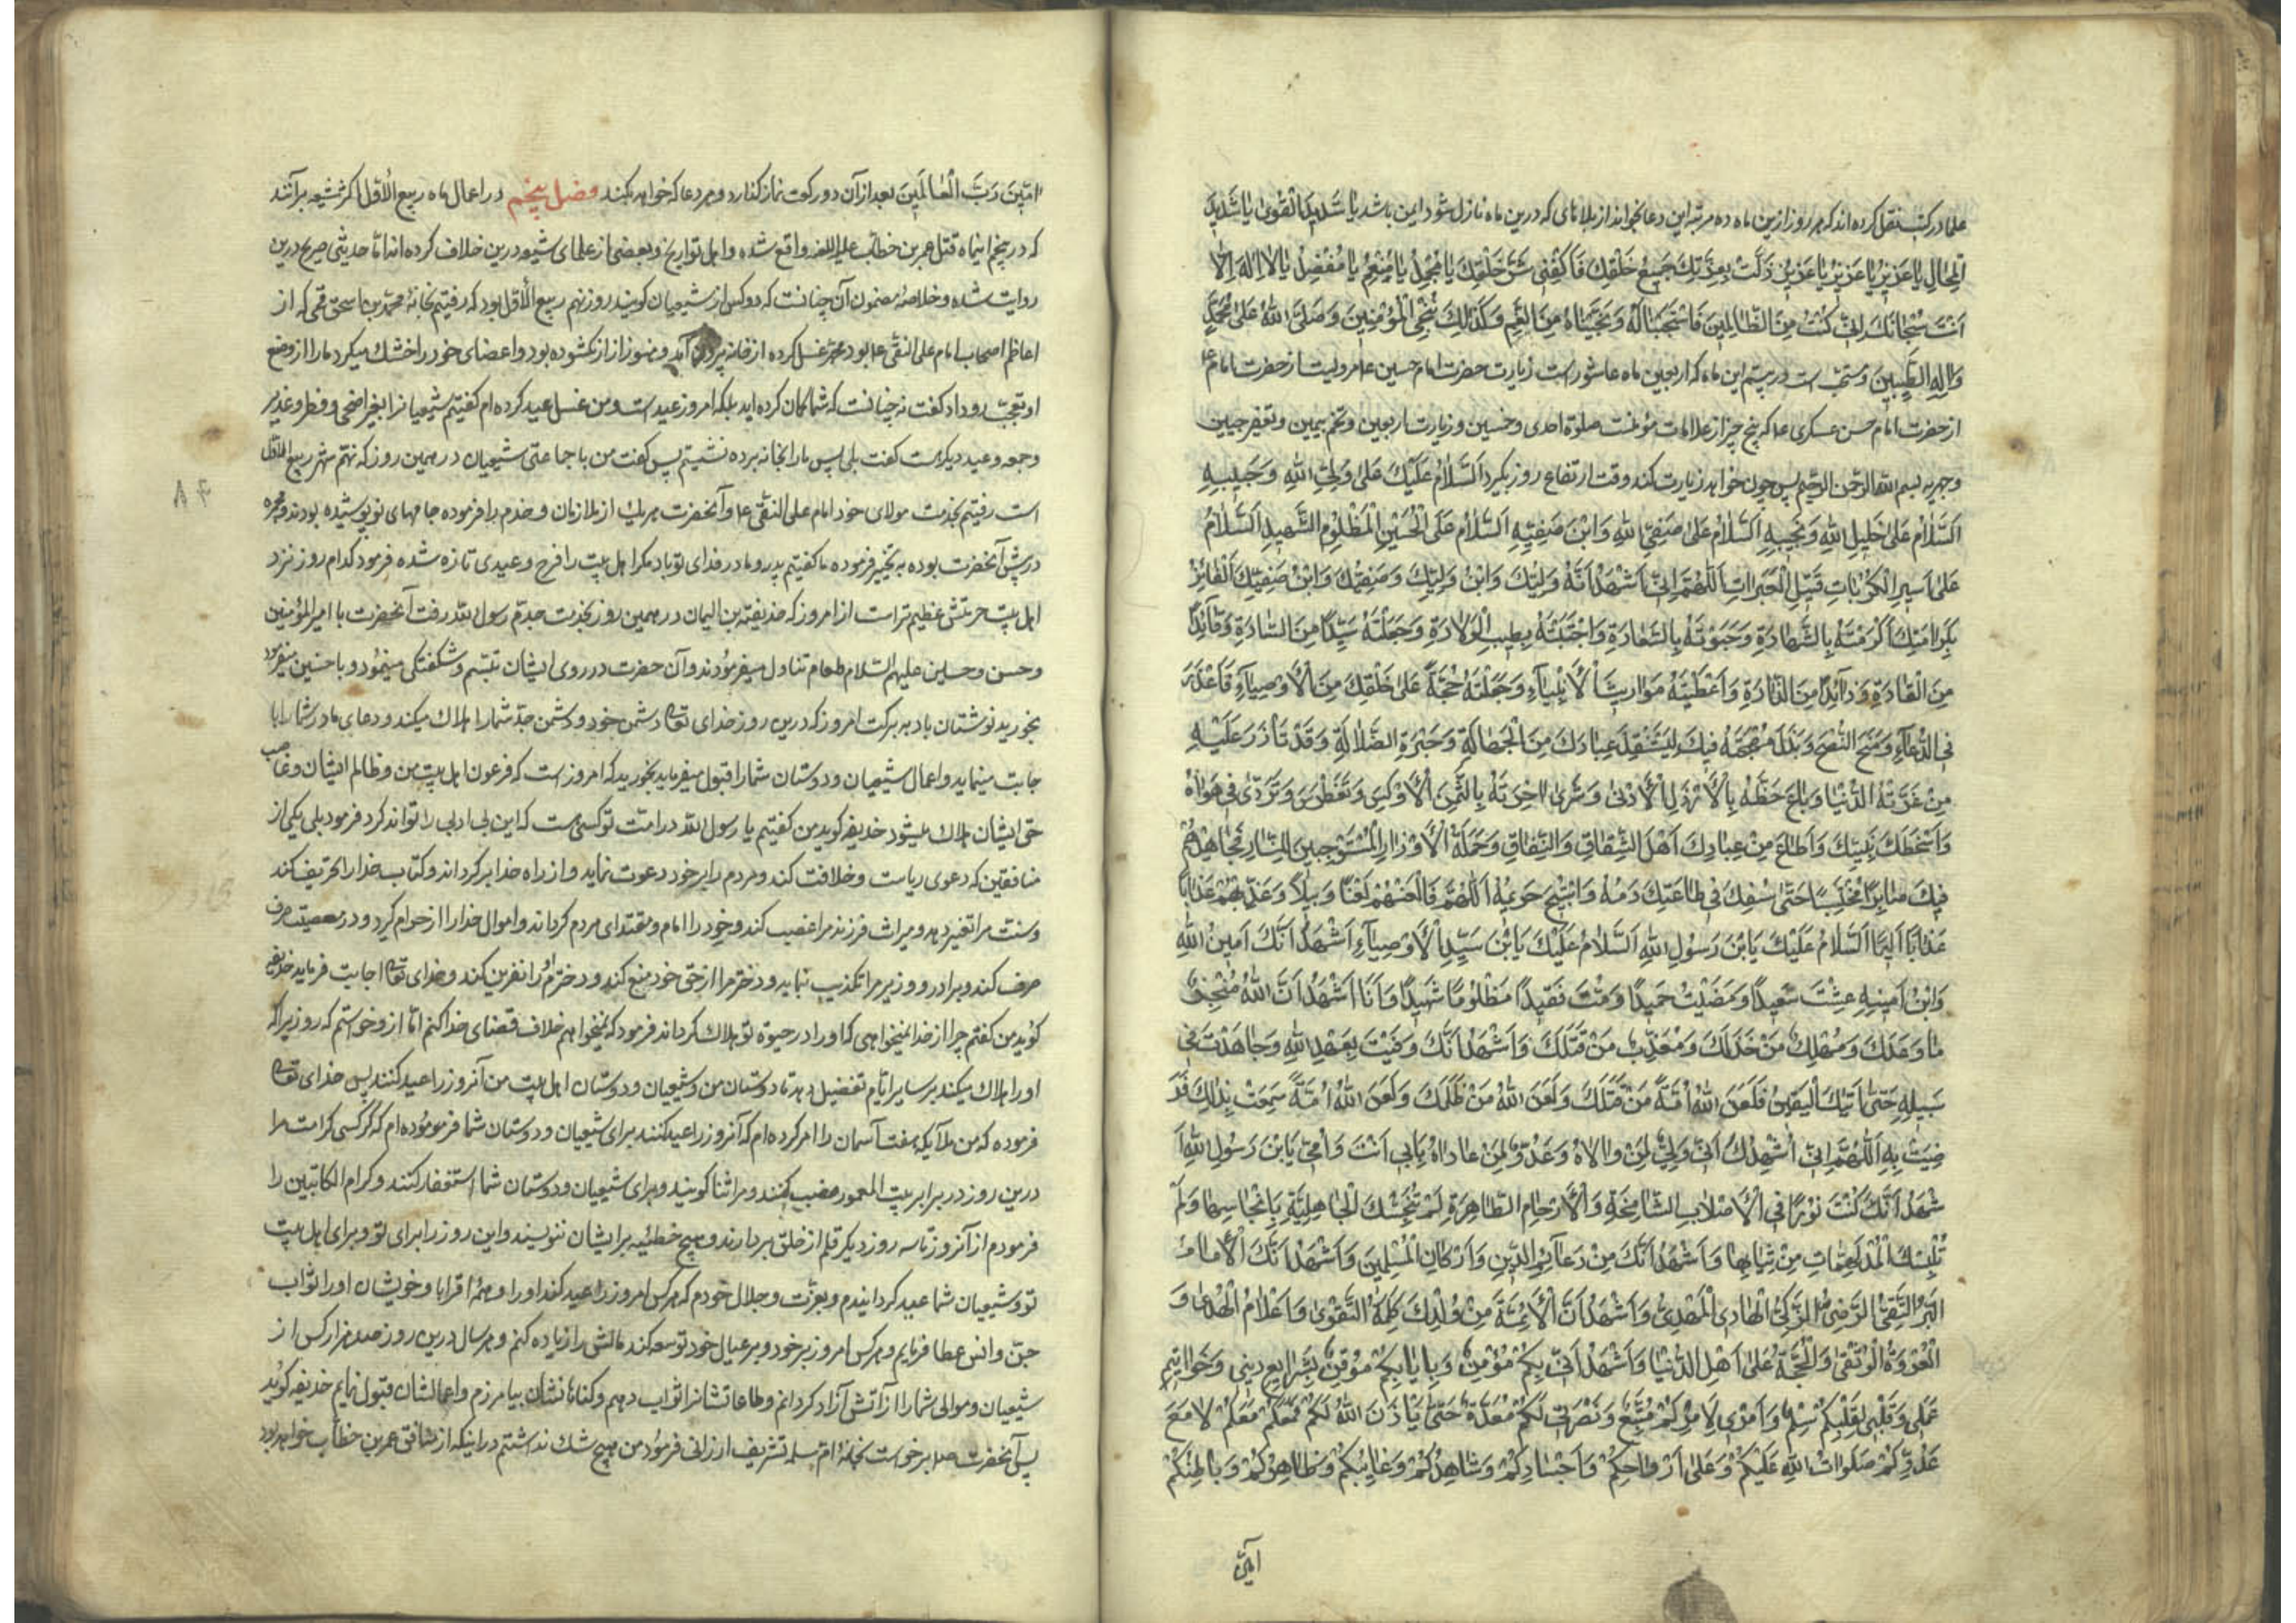 علما در کتب نقل کرده اند که هر روز ازین ماه ده مرتبه این دعا بخواند از بلاهای که درین ماه نازل شود ایمن باشد یا شَدیدَ الْقُویٰ یا شَدیدَ
الْمِحالِ یا عَزیزُ یا عَزیزُ یا عَزیزُ ذَلَّتْ بِعِزَّتِكَ جَمیعُ خَلْقِكَ فَاكْفِنی شَرَّ خَلْقِكَ یا مُجْمِلُ یا مُنْعِمُ یا مُفْضِلُ یا لا اِلٰهَ اِلّا
اَنْتَ سُبْحانَكَ اِنّی كُنْتُ مِنَ الظّالِمینَ فَاسْتَجَبْنا لَهُ وَنَجَّیْناهُ مِنَ الْغَمِّ وَكَذٰلِكَ نُنْجِی الْمُؤْمِنینَ وَصَلَّی اللهُ عَلیٰ مُحَمَّدٍ
وَآلِهِ الطَّیِّبینَ و سنّت است در بیستم این ماه که اربعین ماه عاشوراست زیارت حضرت امام حسین ع مرویست از حضرت امام
از حضرت امام حسن عسکری ع که پنج چیز از علامات مؤمنست صلوة احدی و خمسین و زیارت اربعین و تختم بیمین و تعفیر جبین
و جهر به بسم الله الرّحمن الرّحیم پس چون خواهد زیارت کند وقت ارتفاع روز بگوید اَلسَّلامُ عَلَیْكَ عَلیٰ وَلِیِّ اللهِ وَحَبیبِهِ
اَلسَّلامُ عَلیٰ خَلیلِ اللهِ وَنَجیبِهِ اَلسَّلامُ عَلیٰ صَفِیِّ اللهِ وَابْنِ صَفِیِّهِ اَلسَّلامُ عَلَی الْحُسَیْنِ الْمَظْلُومِ الشَّهیدِ اَلسَّلامُ
عَلیٰ اَسیرِ الْكُرُباتِ قَتیلِ الْعَبَراتِ اَللّٰهُمَّ اِنّی اَشْهَدُ اَنَّهُ وَلِیُّكَ وَابْنُ وَلِیِّكَ وَصَفِیُّكَ وَابْنُ صَفِیِّكَ الْفائِزُ
بِكَرامَتِكَ اَكْرَمْتَهُ بِالشَّهادَةِ وَحَبَوْتَهُ بِالسَّعادَةِ وَاجْتَبَیْتَهُ بِطیبِ الْوِلادَةِ وَجَعَلْتَهُ سَیِّدًا مِنَ السّادَةِ وَقائِدًا
مِنَ الْقادَةِ وَذائِدًا مِنَ الذّادَةِ وَاَعْطَیْتَهُ مَواریثَ الْاَنْبِیآءِ وَجَعَلْتَهُ حُجَّةً عَلیٰ خَلْقِكَ مِنَ الْاَوْصِیآءِ فَاَعْذَرَ
فِی الدُّعآءِ وَمَنَحَ النُّصْحَ وَبَذَلَ مُهْجَتَهُ فیكَ لِیَسْتَنْقِذَ عِبادَكَ مِنَ الْجَهالَةِ وَحَیْرَةِ الضَّلالَةِ وَقَدْ تَاٰزَرَ عَلَیْهِ
مَنْ غَرَّتْهُ الدُّنْیا وَباعَ حَظَّهُ بِالْاَرْذَلِ الْاَدْنیٰ وَشَریٰ اٰخِرَتَهُ بِالثَّمَنِ الْاَوْكَسِ وَتَغَطْرَسَ وَتَرَدّیٰ فی هَواهُ
وَاَسْخَطَكَ نَبِیَّكَ وَاَطاعَ مِنْ عِبادِكَ اَهْلَ الشِّقاقِ وَالنِّفاقِ وَحَمَلَةَ الْاَوْزارِ الْمُسْتَوْجِبینَ النّارَ فَجاهَدَهُمْ
فیكَ صابِرًا مُحْتَسِبًا حَتّیٰ سُفِكَ فی طاعَتِكَ دَمُهُ وَاسْتُبیحَ حَریمُهُ اَللّٰهُمَّ فَالْعَنْهُمْ لَعْنًا وَبیلًا وَعَذِّبْهُمْ عَذابًا
عَذابًا اَلیمًا اَلسَّلامُ عَلَیْكَ یَابْنَ رَسُولِ اللهِ اَلسَّلامُ عَلَیْكَ یَابْنَ سَیِّدِ الْاَوْصِیآءِ اَشْهَدُ اَنَّكَ اَمینُ اللهِ
وَابْنُ اَمینِهِ عِشْتَ سَعیدًا وَمَضَیْتَ حَمیدًا وَمُتَّ فَقیدًا مَظْلُومًا شَهیدًا وَاَنَا اَشْهَدُ اَنَّ اللهَ مُنْجِزٌ
ما وَعَدَكَ وَمُهْلِكٌ مَنْ خَذَلَكَ وَمُعَذِّبٌ مَنْ قَتَلَكَ وَاَشْهَدُ اَنَّكَ وَفَیْتَ بِعَهْدِ اللهِ وَجاهَدْتَ فی
سَبیلِهِ حَتّیٰ اَتیٰكَ الْیَقینُ فَلَعَنَ اللهُ اُمَّةً مَنْ قَتَلَكَ وَلَعَنَ اللهُ مَنْ ظَلَمَكَ وَلَعَنَ اللهُ اُمَّةً سَمِعَتْ بِذٰلِكَ فَرَ
ضِیَتْ بِهِ اَللّٰهُمَّ اِنّی اُشْهِدُكَ اَنّی وَلِیٌّ لِمَنْ والاهُ وَعَدُوٌّ لِمَنْ عاداهُ بِاَبی اَنْتَ وَاُمّی یَابْنَ رَسُولِ اللهِ اَ
شْهَدُ اَنَّكَ كُنْتَ نُورًا فِی الْاَصْلابِ الشّامِخَةِ وَالْاَرْحامِ الطّاهِرَةِ لَمْ تُنَجِّسْكَ الْجاهِلِیَّةُ بِاَنْجاسِها وَلَمْ
تُلْبِسْكَ الْمُدْلَهِمّاتِ مِنْ ثِیابِها وَاَشْهَدُ اَنَّكَ مِنْ دَعآئِمِ الدّینِ وَاَرْكانِ الْمُسْلِمینَ وَاَشْهَدُ اَنَّكَ الْاِمامُ
الْبَرُّ التَّقِیُّ الرَّضِیُّ الزَّكِیُّ الْهادِی الْمَهْدِیُّ وَاَشْهَدُ اَنَّ الْاَئِمَّةَ مِنْ وُلْدِكَ كَلِمَةُ التَّقْویٰ وَاَعْلامُ الْهُدیٰ وَ
الْعُرْوَةُ الْوُثْقیٰ وَالْحُجَّةُ عَلیٰ اَهْلِ الدُّنْیا وَاَشْهَدُ اَنّی بِكُمْ مُؤْمِنٌ وَبِاِیابِكُمْ مُوقِنٌ بِشَرایِعِ دینی وَخَواتیمِ
عَمَلی وَقَلْبی لِقَلْبِكُمْ سِلْمٌ وَاَمْری لِاَمْرِكُمْ مُتَّبِعٌ وَنُصْرَتی لَكُمْ مُعَدَّةٌ حَتّیٰ یَاْذَنَ اللهُ لَكُمْ فَمَعَكُمْ مَعَكُمْ لا مَعَ
عَدُوِّكُمْ صَلَواتُ اللهِ عَلَیْكُمْ وَعَلیٰ اَرْواحِكُمْ وَاَجْسادِكُمْ وَشاهِدِكُمْ وَغایِبِكُمْ وَظاهِرِكُمْ وَباطِنِكُمْ
آمین
آمّینَ رَبَّ الْعالَمینَ بعد از آن دو رکعت نماز گذارد و هر دعا که خواهد بکند فصل پنجم در اعمال ماه ربیع الاوّل اکثر شیعه برآنند
که در پنجم اینماه قتل عمر بن خطاب علیه اللعنه واقع شده و اهل تواریخ و بعضی از علمای شیعه درین خلاف کرده اند امّا حدیثی صریح درین
روایت شده و خلاصهٔ مضمون آن چنانست که دو کس از شیعیان گویند روز نهم ربیع الاوّل بود که رفتیم بخانهٔ محمّد بن اسحق قمی که از
اعاظم اصحاب امام علی النقی ع بود غسل کرده از خانه بیرون آمد و هنوز ازار نکشوده بود و اعضای خود را خشك میکرد ما را از وضع
او تعجب رو داد گفت نه چنانست که شما گمان کرده اید بلکه امروز عید است و من غسل عید کرده ام گفتیم شیعیانرا بغیر اضحی و فطر و غدیر
و جمعه عید دیگر هست گفت بلی پس ما را بخانه برده نشستیم پس گفت من با جماعتی شیعیان در همین روز که نهم شهر ربیع الاوّل
است رفتیم بخدمت مولای خود امام علی النقی ع و آنحضرت هر یك از ملازمان و خدم را فرموده جامهای نو پوشیده بودند و مجمره
در پیش آنحضرت بوده به تبخیر فرموده ما گفتیم پدر و مادر فدای تو باد مگر اهل بیت را فرح و عیدی تازه شده فرمود کدام روز نزد
اهل بیت حرمتش عظیم تر است از امروز که حذیفة بن الیمان در همین روز بخدمت جدّم رسول الله رفت آنحضرت با امیر المؤمنین
و حسن و حسین علیهم السّلام طعام تناول میفرمودند و آن حضرت در روی ایشان تبسّم و شکفتگی مینمود و با حسنین میفرمود
بخورید نوشتان باد به برکت امروز که درین روز خدای تعالی دشمن خود و دشمن جدّ شما را هلاك میکند و دعای مادر شما را با
جابت مینماید و اعمال شیعیان و دوستان شما را قبول میفرماید بخورید که امروز است که فرعون اهل بیت من و ظالم ایشان و غاصب
حق ایشان هلاك میشود حذیفه گوید من گفتیم یا رسول الله در امت تو کسی هست که این بی ادبی را تواند کرد فرمود بلی یکی از
منافقین که دعوی ریاست و خلافت کند و مردم را بر خود دعوت نماید و از راه خدا برگرداند و کتاب خدا را تحریف کند
و سنت مرا تغییر دهد و میراث فرزند مرا غصب کند و خود را امام و مقتدای مردم گرداند و اموال خدا را از حرام گیرد و در معصیت صرف
صرف کند و برادر و وزیر مرا تکذیب نماید و دختر مرا از حق خود منع کند و دخترم او را نفرین کند و خدای تعالی اجابت فرماید حذیفه
گوید من گفتم چرا از خدا نمیخواهی که او را در حیوة تو هلاك گرداند فرمود که نمیخواهم خلاف قضای خدا کنم امّا ازو خواستم که روزیرا که
او را هلاك میکند بر سایر ایّام تفضیل دهد تا دوستان من و شیعیان و دوستان اهل بیت من آنروز را عید کنند پس خدای تعالی
فرموده که من ملآیکه هفت آسمان را امر کرده ام که آنروز را عید کنند برای شیعیان و دوستان شما فرموده ام که کرسی کرامت مرا
درین روز در برابر بیت المعمور نصب کنند و مرا ثنا گویند و برای شیعیان و دوستان شما استغفار کنند و کرام الکاتبین را
فرمودم از آنروز تا سه روز دیگر قلم از خلق بردارند و هیچ خطئیه بر ایشان ننویسند و این روز را برای تو و برای اهل بیت
تو و شیعیان شما عید گردانیدم و بعزّت و جلال خودم که هر کس امروز را عید کند او را و همهٔ اقربا و خویشان او را ثواب
جنّ و انس عطا فرمایم و هر کس امروز بر خود و بر عیال خود توسعه کند مالش را زیاده کنم و هر سال درین روز صد هزار کس از
شیعیان و موالی شما را از آتش آزاد گردانم و طاعاتشانرا ثواب دهم و گناهانشان بیامرزم و اعمالشان قبول نمایم حذیفه گوید
پس آنحضرت ص برخواست بخانهٔ ام سلمه تشریف ارزانی فرمود من هیچ شك نداشتم در اینکه از منافق عمر بن خطاب خواهد بود